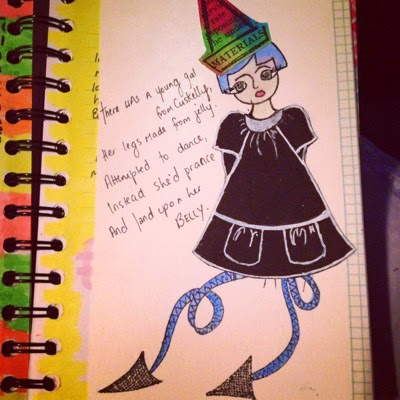 MATERIALS
There was a young gal
from Cuskelly,
Her legs made from jelly.
Attempted to dance,
Instead she'd prance
And land upon her
BELLY.